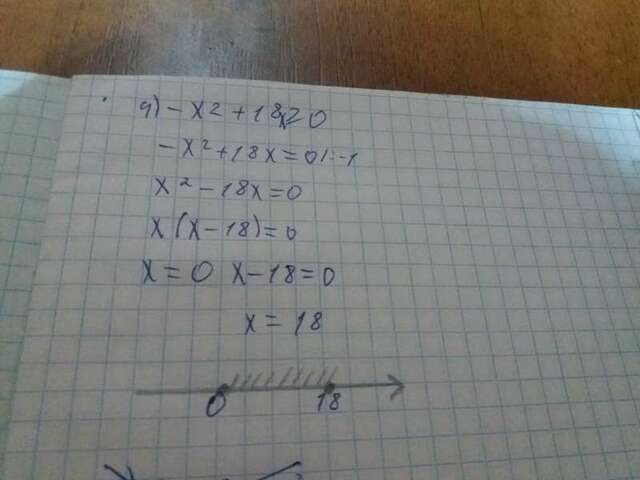 g) -x² + 18x≥0
-x² + 18x = 0 |: -1
x² - 18x = 0
x (x - 18) = 0
x = 0 x - 18 = 0
x = 18
0 18